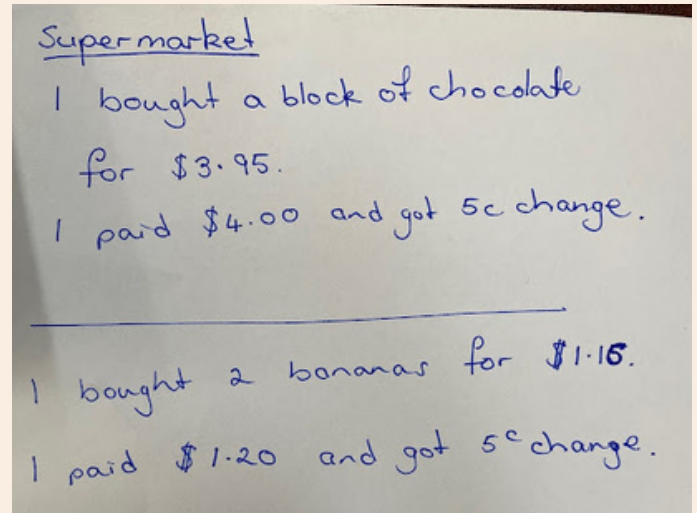 Supermarket
I bought a block of chocolate
for $3.95.
I paid $4.00 and got 5c change.
I bought 2 bananas for $1.15.
I paid $1.20 and got 5c change.